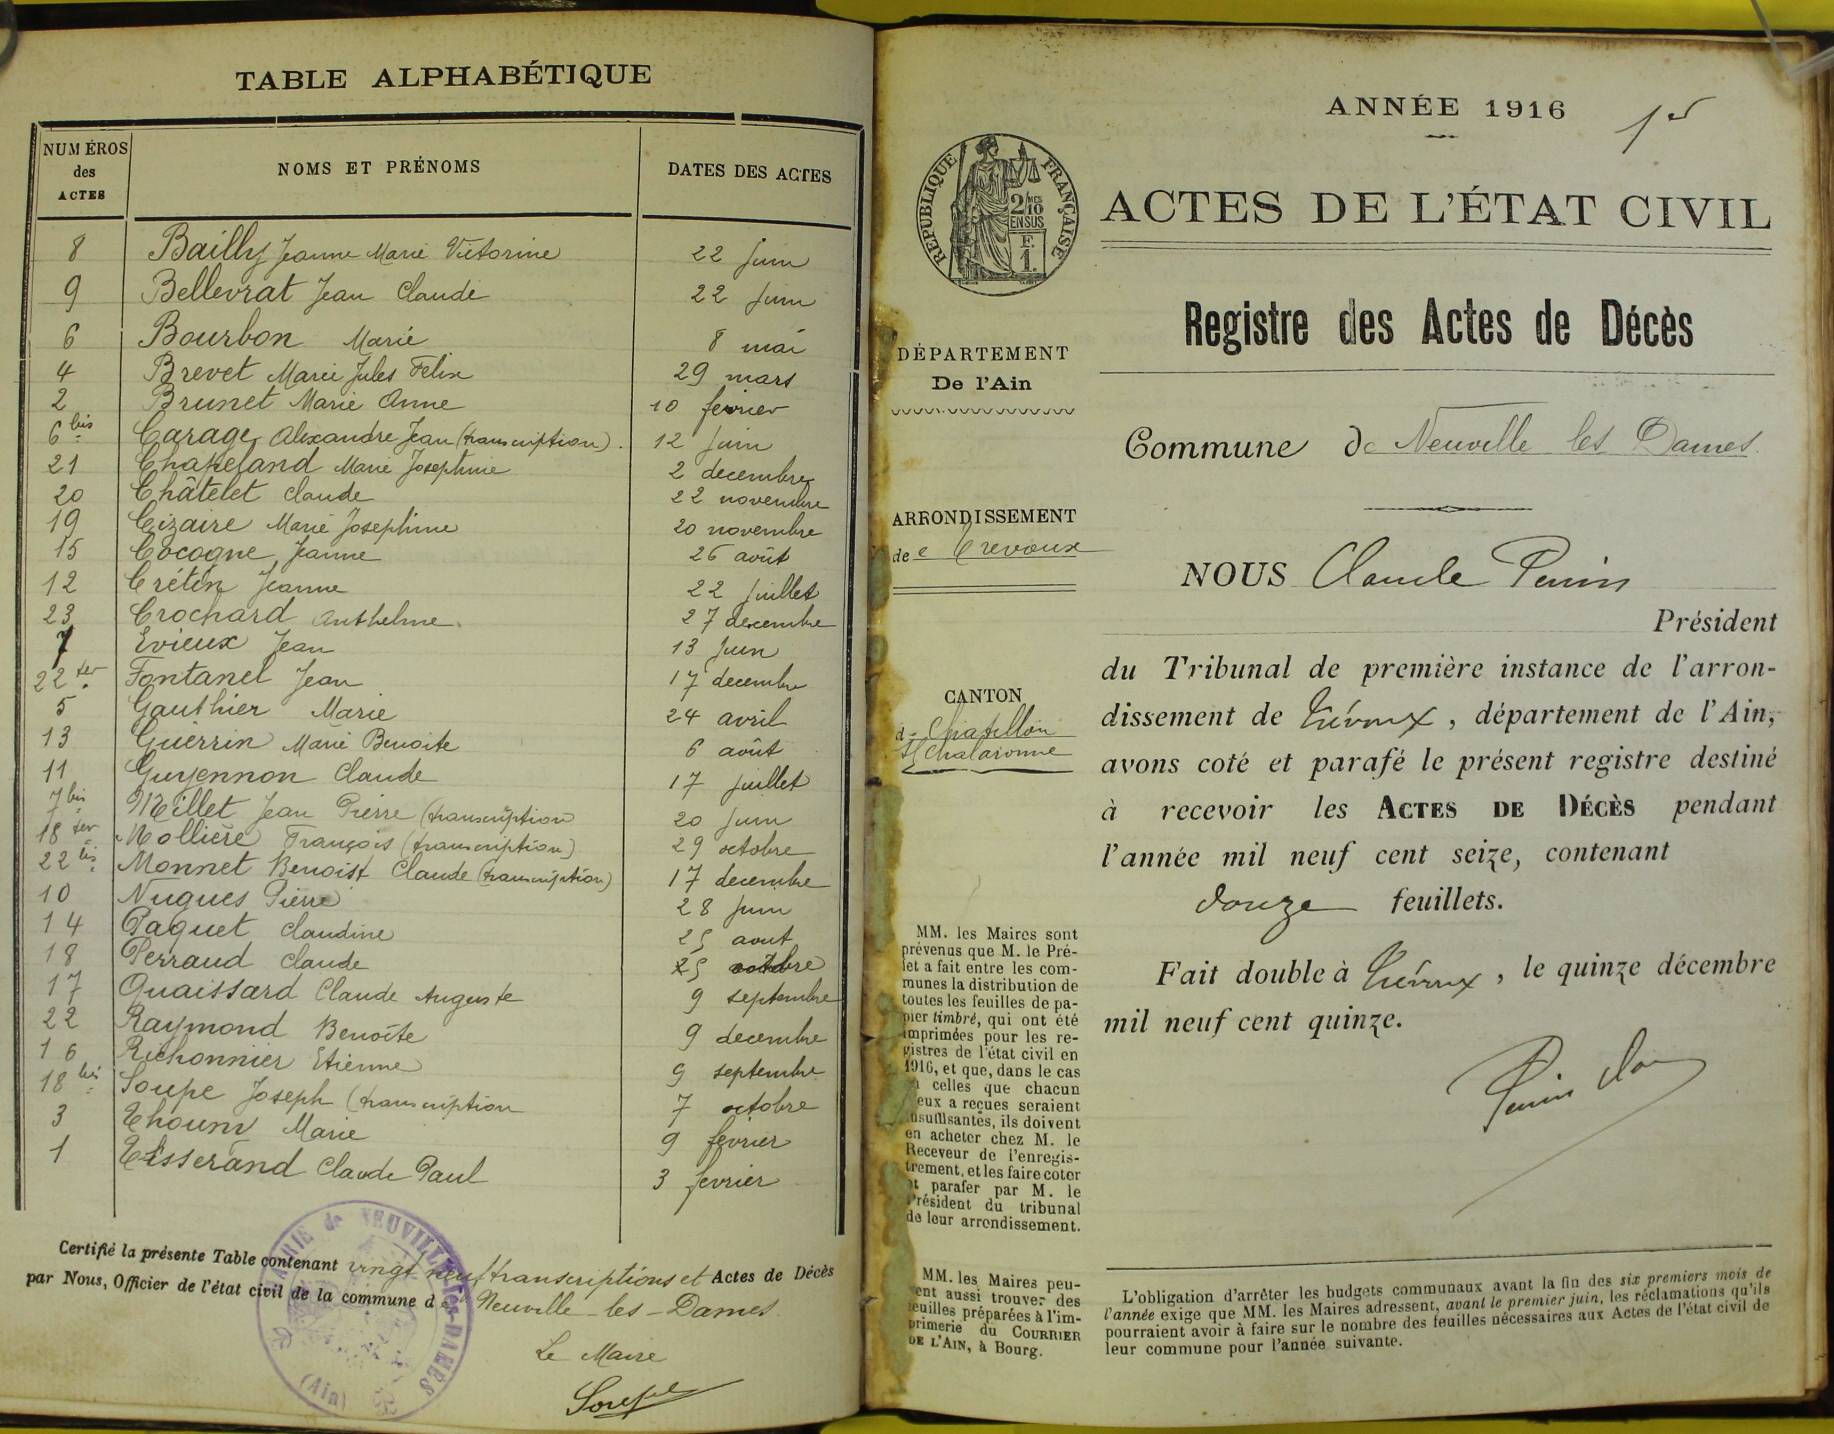 TABLE ALPHABÉTIQUE
NUMÉROS des ACTES
NOMS ET PRÉNOMS
DATES DES ACTES
8 Bailly Jeanne Marie Victorine 22 juin
9 Bellevrat Jean Claude 22 juin
6 Bourbon Marie 8 mai
4 Brevet Marie Jules Felix 29 mars
2 Brunet Marie Anne 10 fevrier
6 bis Carage Alexandre Jean (transcription). 12 juin
21 Chapeland Marie Josephine 2 decembre
20 Châtelet Claude 22 novembre
19 Cizaire Marie Josephine 20 novembre
15 Cocogne Jeanne 26 août
12 Crétin Jeanne 22 juillet
23 Crochard Anthelme. 27 decembre
7 Evieux Jean 13 juin
22 ter Fontanel Jean 17 decembre
5 Gauthier Marie 24 avril
13 Guerrin Marie Benoite 6 août
11 Guyennon Claude 17 juillet
7 bis Millet Jean Pierre (transcription 20 juin
18 ter Mollière François (transcription) 29 octobre
22 bis Monnet Benoist Claude (transcription) 17 decembre
10 Nugues Pierre 28 juin
14 Paquet Claudine 25 aout
18 Perraud Claude 25 octobre
17 Quaissard Claude Auguste 9 septembre
22 Raymond Benoîte 9 decembre
16 Richonnier Etienne 9 septembre
18 bis Soupe Joseph (transcription 7 octobre
3 Marie 9 février
1 Tisserand Claude Paul 3 fevrier
Certifié la présente Table contenant vingt neuf transcriptions et Actes de Décès
par Nous, Officier de l'état civil de la commune de Neuville-les-Dames.
MAIRIE de NEUVILLE-les-DAMES (Ain)
Le Maire
Soupe
ANNÉE 1916
RÉPUBLIQUE FRANÇAISE
2/10 MES EN SUS
F.
1.
ACTES DE L'ÉTAT CIVIL
Registre des Actes de Décès
DÉPARTEMENT
De l'Ain
Commune de Neuville les Dames.
ARRONDISSEMENT
de Trevoux
CANTON
d Chatillon
s/ Chalaronne
NOUS Claude Perrin
Président
du Tribunal de première instance de l'arron-
dissement de Trévoux, département de l'Ain,
avons coté et parafé le présent registre destiné
à recevoir les ACTES DE DÉCÈS pendant
l'année mil neuf cent seize, contenant
douze feuillets.
Fait double à Trévoux, le quinze décembre
mil neuf cent quinze.
MM. les Maires sont
prévenus que M. le Pré-
fet a fait entre les com-
munes la distribution de
toutes les feuilles de pa-
pier timbré, qui ont été
imprimées pour les re-
gistres de l'état civil en
1916, et que, dans le cas
celles que chacun
eux a reçues seraient
insuffisantes, ils doivent
en acheter chez M. le
Receveur de l'enregis-
trement, et les faire coter
et parafer par M. le
Président du tribunal
de leur arrondissement.
MM. les Maires peu-
vent aussi trouver des
feuilles préparées à l'im-
primerie du COURRIER
DE L'AIN, à Bourg.
L'obligation d'arrêter les budgets communaux avant la fin des six premiers mois de
l'année exige que MM. les Maires adressent, avant le premier juin, les réclamations qu'ils
pourraient avoir à faire sur le nombre des feuilles nécessaires aux Actes de l'état civil de
leur commune pour l'année suivante.